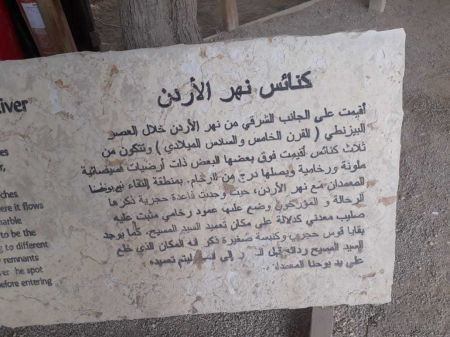 كنائس نهر الأردن
أقيمت على الجانب الشرقي من نهر الأردن خلال العصر
البيزنطي ( القرن الخامس والسادس الميلادي ) وتتكون من
ثلاث كنائس أقيمت فوق بعضها البعض ذات أرضيات فسيفسائية
ملونة ورخامية ويصلها درج من الرخام. بمنطقة التقاء نبع يوحنا
المعمدان مع نهر الأردن، حيث وجدت قاعدة حجرية ذكرها
الرحالة و المؤرخون وضع عليها عمود رخامي مثبت عليه
صليب معدني كدلالة على مكان تعميد السيد المسيح. كما يوجد
بقايا قوس حجري وكنيسة صغيرة ذكر انه المكان الذي خلع
السيد المسيح رداءه قبل إلى ليتم تعميده
على يد يوحنا المعمدان.
iver
es
r,
rches
ere it flows
marble
to be the
ng to different
remnants
ver he spot
before entering